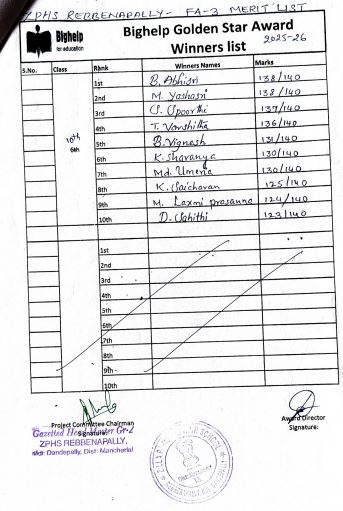 ZPHS REBBENAPALLY - FA-3 MERIT LIST
Bighelp
for education
Bighelp Golden Star Award
Winners list
2025-26
S.No. Class Rank Winners Names Marks
1st B. Abhisri 138/140
2nd M. Yashasri 138/140
3rd S. Spoorthi 137/140
4th T. Varshitha 136/140
10th
6th
5th B. Vignesh 131/140
6th K. Sharanya 130/140
7th Md. Umeria 130/140
8th K. Saicharan 125/140
9th M. Laxmi prasanna 124/140
10th D. Sahithi 123/140
1st
2nd
3rd
4th
5th
6th
7th
8th
9th
10th
Project Committee Chairman
Signature:
Award Director
Signature:
Gazetted Head Master Gr-2
ZPHS REBBENAPALLY,
Mdl: Dandepally, Dist: Mancherial